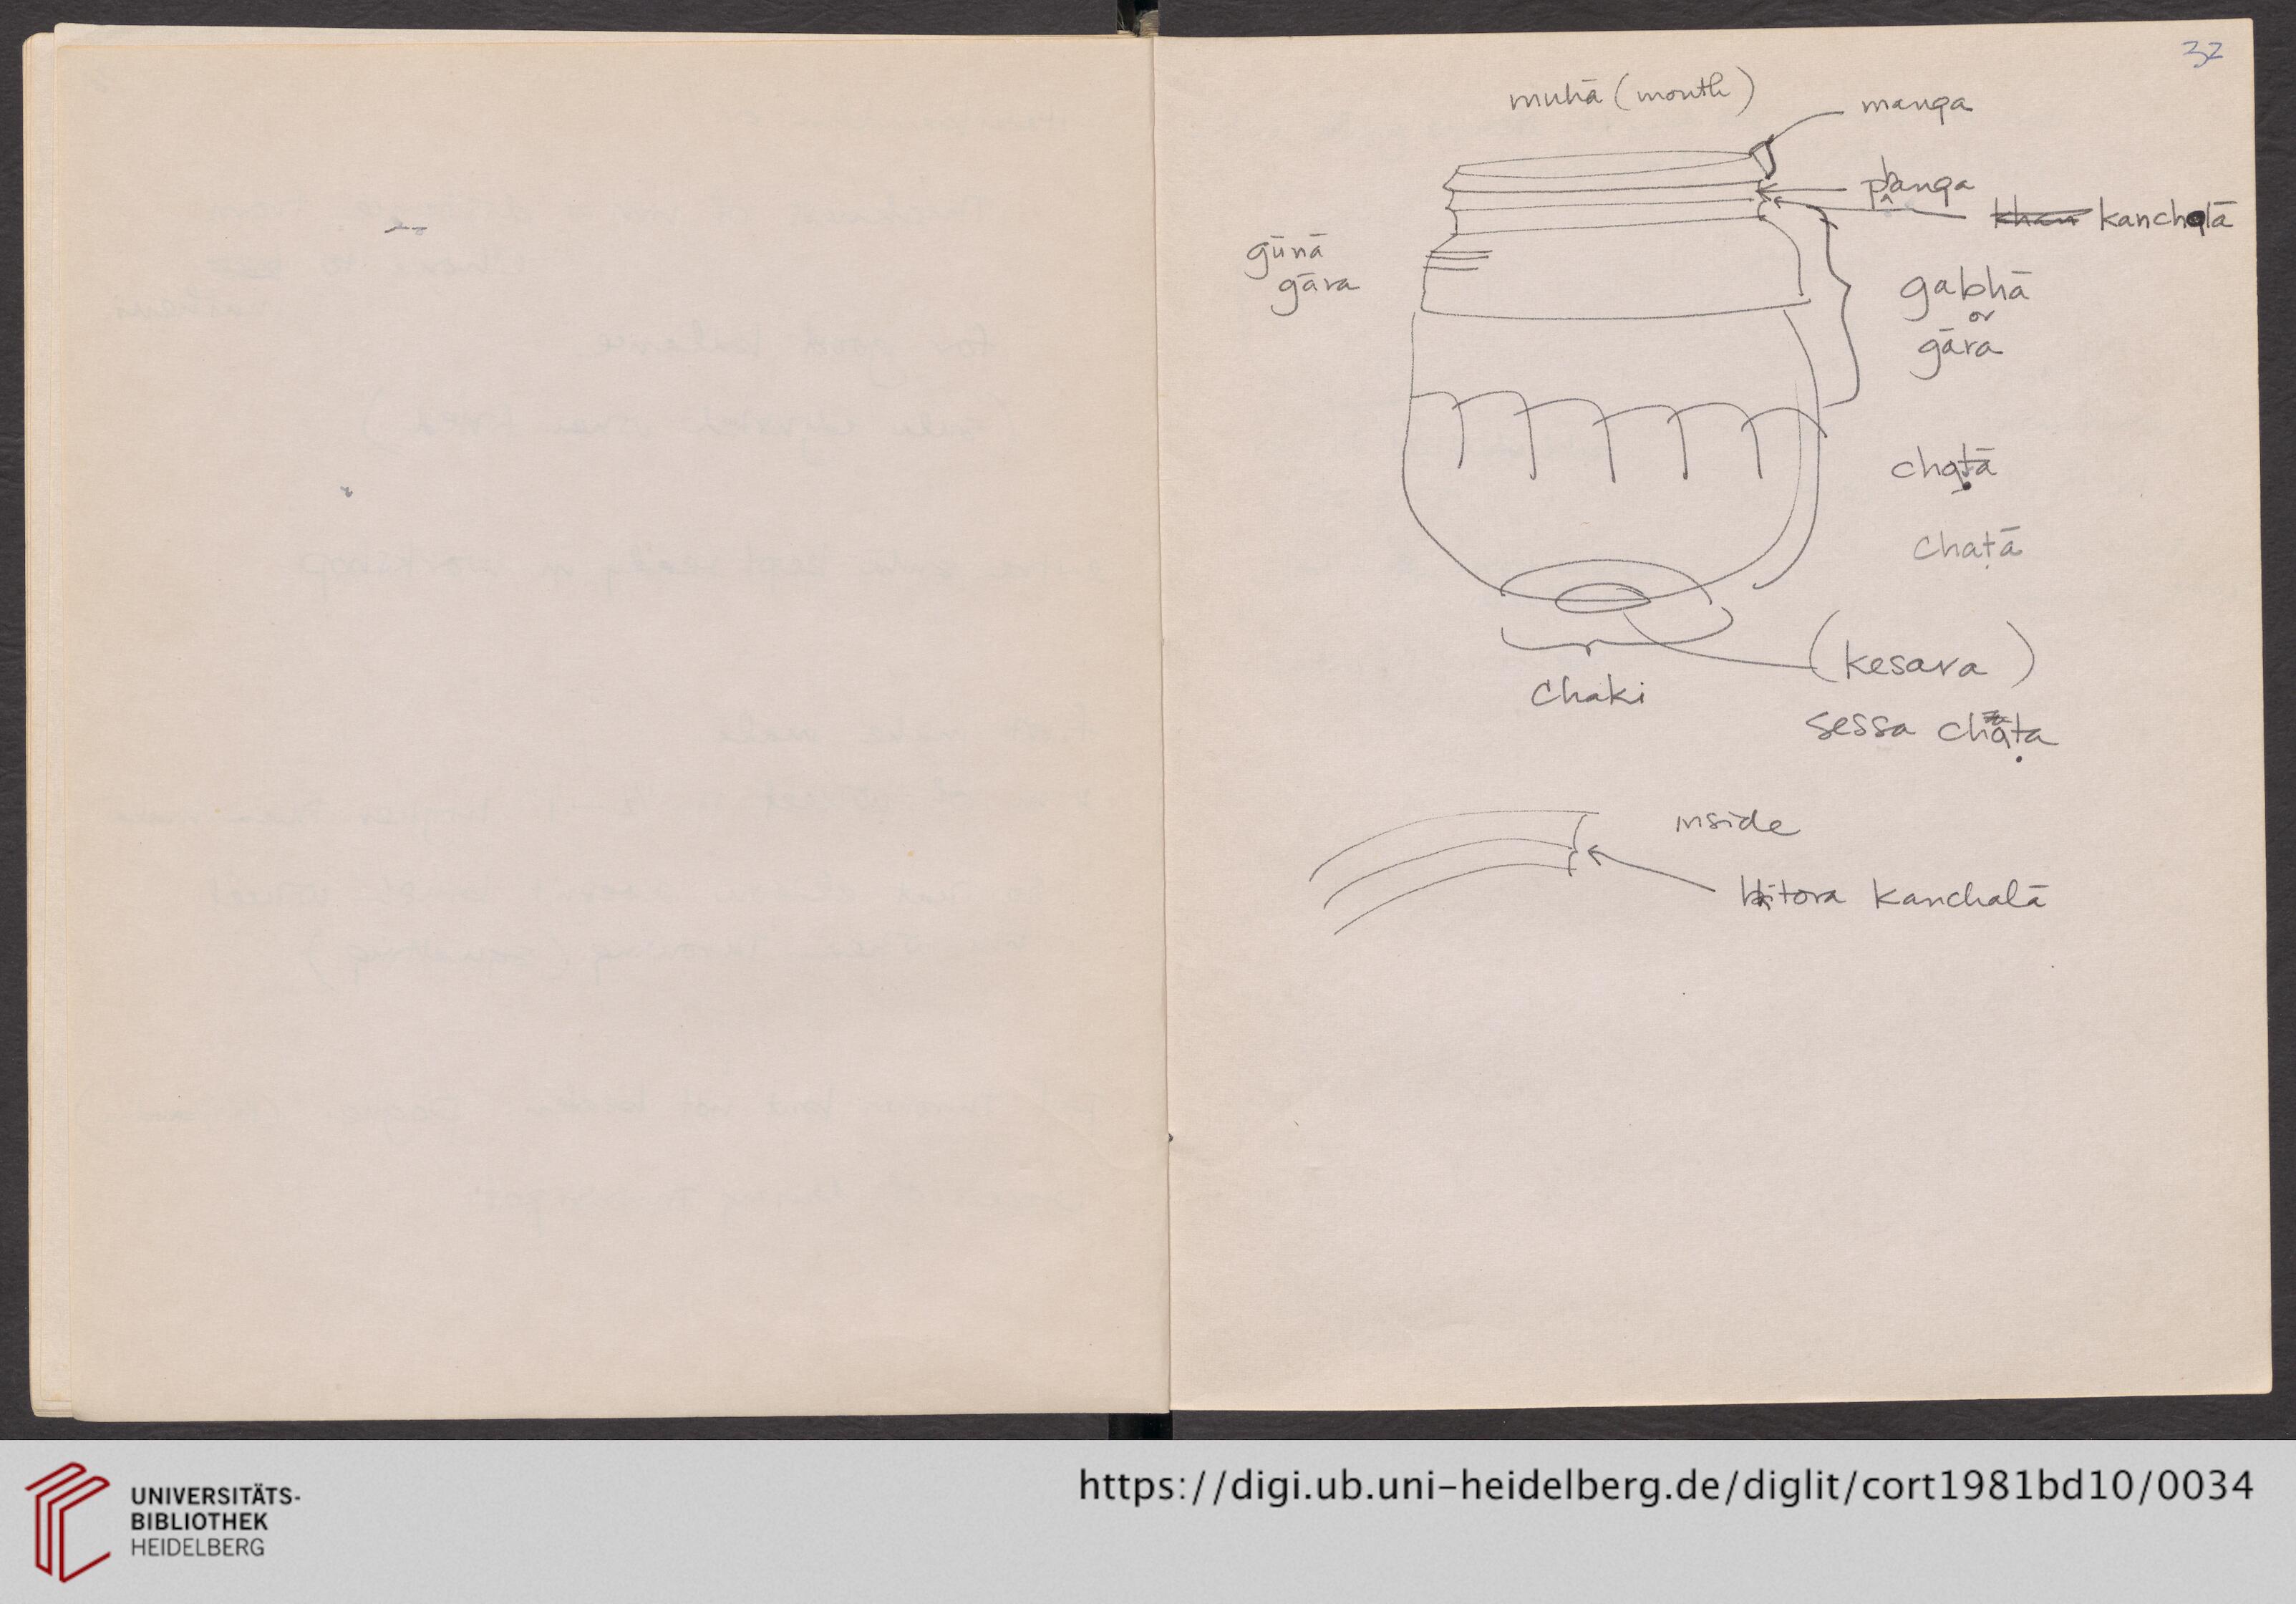 32
muhā (mouth)
manga
phanga
khan kanchalā
günā
gāra
gabhā
or
gāra
chaṭā
chaṭā
(kesara)
chaki
sessa chaṭa
inside
bhitora kanchalā
UNIVERSITÄTS-
BIBLIOTHEK
HEIDELBERG
https://digi.ub.uni-heidelberg.de/diglit/cort1981bd10/0034